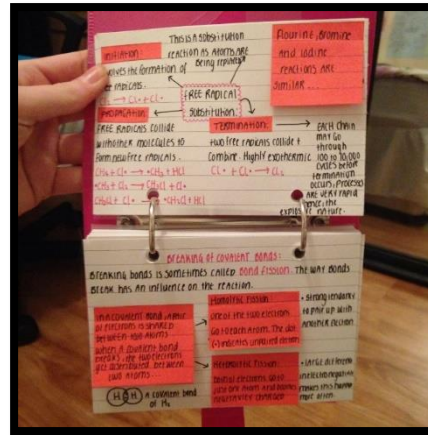 This is a substitution
reaction as atoms are
being replaced
INITIATION:
involves the formation of
free radicals.
→ Cl• + Cl•
FREE RADICAL
SUBSTITUTION.
Flourine, Bromine
and iodine
reactions are
similar...
PROPAGATION:
FREE RADICALS COLLIDE
with other molecules to
form new free radicals.
CH₄ + Cl• → •CH₃ + HCl
•CH₃ + Cl₂ → CH₃Cl + Cl•
CH₃Cl + Cl• → •CH₂Cl + HCl
TERMINATION:
two free radicals collide +
combine. Highly exothermic
Cl• + Cl• → Cl₂
EACH CHAIN
MAY GO
through
100 to 10,000
cycles before
termination
occurs. Processes
ARE VERY RAPID
hence, the
explosive nature.
BREAKING OF COVALENT BONDS:
Breaking bonds is sometimes called bond fission. The way bonds
break has an influence on the reaction.
In a covalent bond, a pair
of electrons is shared
between two atoms.
When a covalent bond
breaks, the two electrons
get distributed between
two atoms.
Homolytic Fission:
one of the two electrons
go to each atom. The dot
(•) indicates unpaired electron
• strong tendency
to pair up with
another electron
Heterolytic Fission:
just one atom and bonds
• large different
in electronegativity
makes this happen
more often.
H H A covalent bond
of H₂